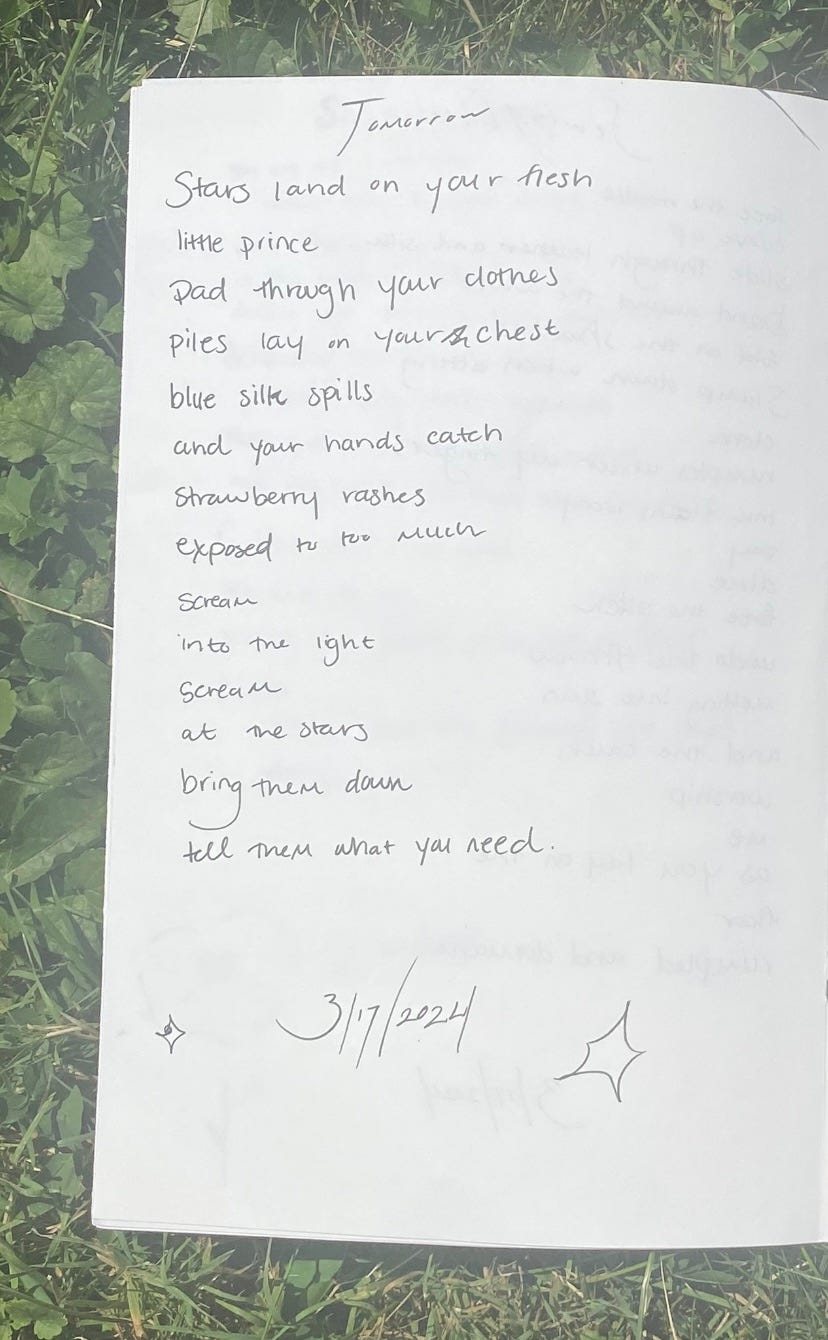 Tomorrow
Stars land on your flesh
little prince
Pad through your clothes
piles lay on your chest
blue silk spills
and your hands catch
strawberry rashes
exposed to too much
scream
into the light
scream
at the stars
bring them down
tell them what you need.
3/17/2024